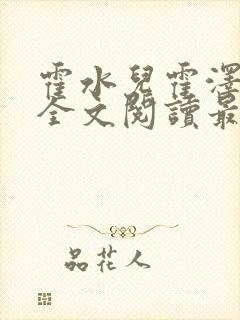 霍水兒霍澤
全文閱讀最
品花人